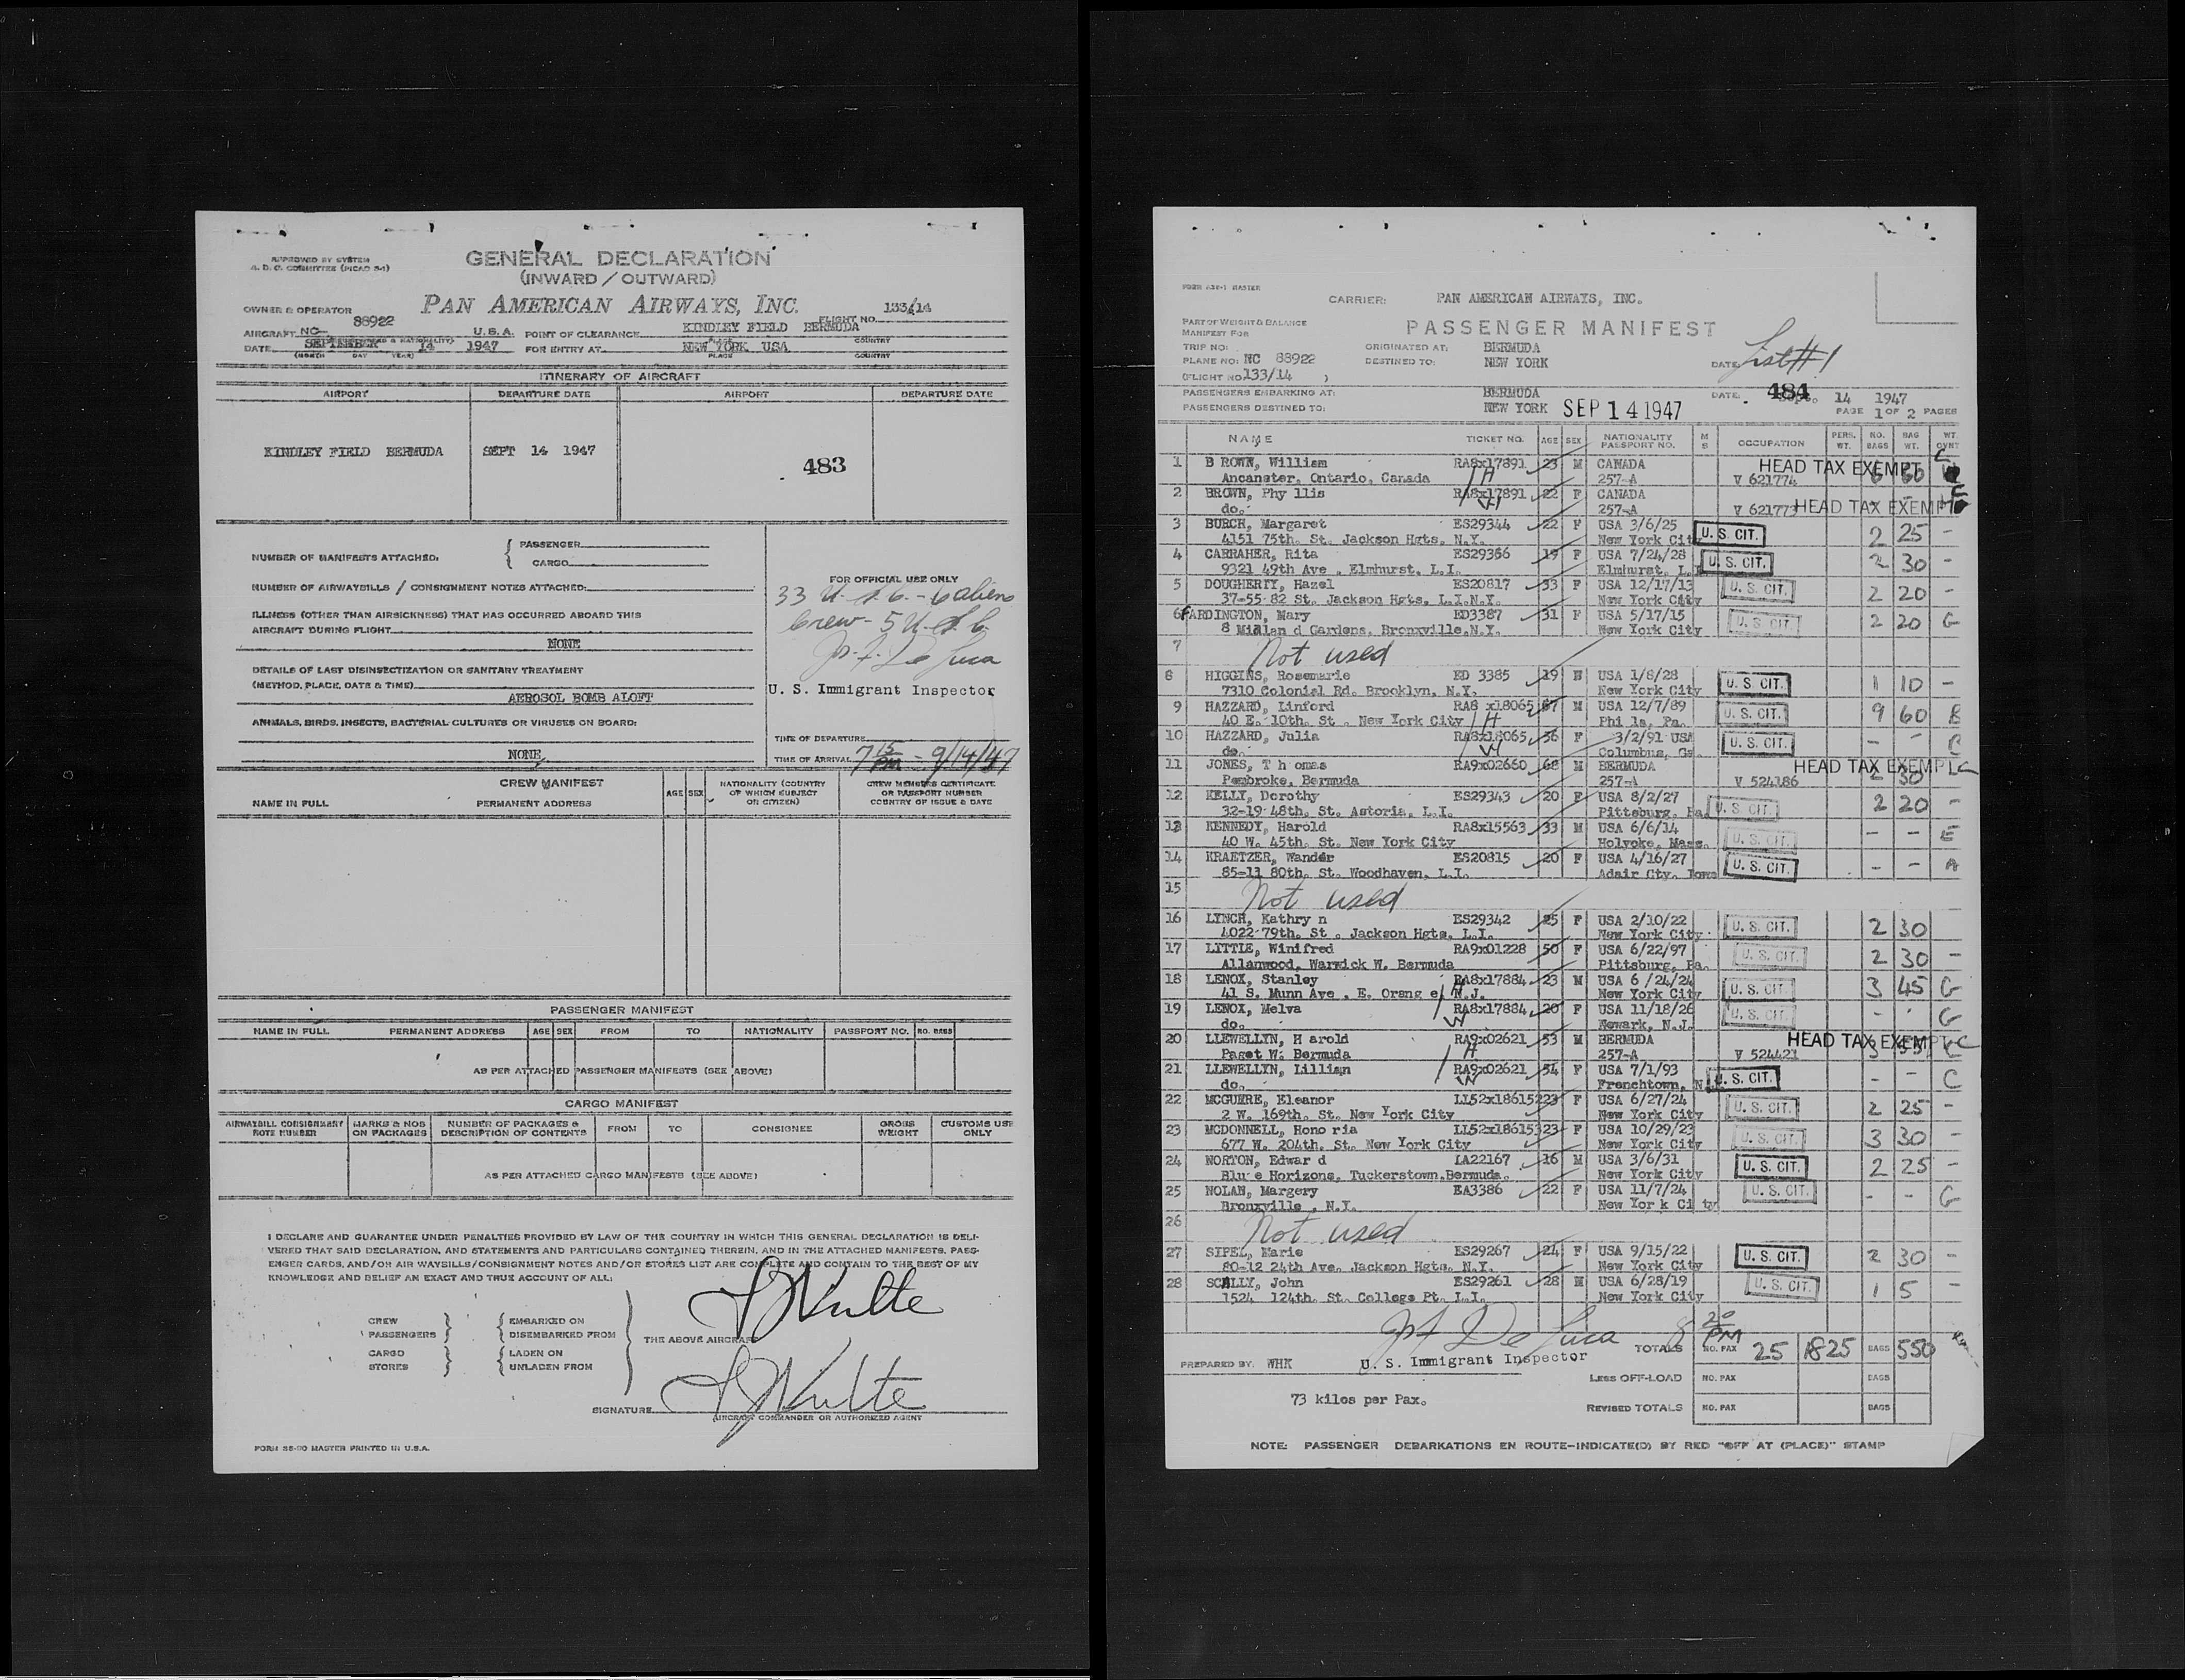 APPROVED BY SYSTEM
A. D. C. COMMITTEE (PICAO S-1)
GENERAL DECLARATION
(INWARD / OUTWARD)
OWNER & OPERATOR PAN AMERICAN AIRWAYS, INC. FLIGHT NO. 133/14
AIRCRAFT NC- 88922 U.S.A. POINT OF CLEARANCE KINDLEY FIELD BERMUDA
DATE SEPTEMBER 14 1947 FOR ENTRY AT NEW YORK USA
(MONTH DAY YEAR) PLACE COUNTRY
ITINERARY OF AIRCRAFT
AIRPORT DEPARTURE DATE AIRPORT DEPARTURE DATE
KINDLEY FIELD BERMUDA SEPT 14 1947 483
NUMBER OF MANIFESTS ATTACHED: { PASSENGER
CARGO
NUMBER OF AIRWAYBILLS / CONSIGNMENT NOTES ATTACHED:
ILLNESS (OTHER THAN AIRSICKNESS) THAT HAS OCCURRED ABOARD THIS
AIRCRAFT DURING FLIGHT
NONE
DETAILS OF LAST DISINSECTIZATION OR SANITARY TREATMENT
(METHOD, PLACE, DATE & TIME)
AEROSOL BOMB ALOFT
ANIMALS, BIRDS, INSECTS, BACTERIAL CULTURES OR VIRUSES ON BOARD:
NONE
FOR OFFICIAL USE ONLY
33 U.S.C. - 6 aliens
Crew - 5 U.S.C.
Jos. F. De Luca
U. S. Immigrant Inspector
TIME OF DEPARTURE
TIME OF ARRIVAL 7 15 PM - 9/14/47
CREW MANIFEST
NAME IN FULL PERMANENT ADDRESS AGE SEX NATIONALITY (COUNTRY OF WHICH SUBJECT OR CITIZEN) CREW MEMBERS CERTIFICATE OR PASSPORT NUMBER COUNTRY OF ISSUE & DATE
PASSENGER MANIFEST
NAME IN FULL PERMANENT ADDRESS AGE SEX FROM TO NATIONALITY PASSPORT NO. NO. BAGS
AS PER ATTACHED PASSENGER MANIFESTS (SEE ABOVE)
CARGO MANIFEST
AIRWAYBILL CONSIGNMENT NOTE NUMBER MARKS & NOS ON PACKAGES NUMBER OF PACKAGES & DESCRIPTION OF CONTENTS FROM TO CONSIGNEE GROSS WEIGHT CUSTOMS USE ONLY
AS PER ATTACHED CARGO MANIFESTS (SEE ABOVE)
I DECLARE AND GUARANTEE UNDER PENALTIES PROVIDED BY LAW OF THE COUNTRY IN WHICH THIS GENERAL DECLARATION IS DELI-
VERED THAT SAID DECLARATION, AND STATEMENTS AND PARTICULARS CONTAINED THEREIN, AND IN THE ATTACHED MANIFESTS, PASS-
ENGER CARDS, AND/OR AIR WAYBILLS/CONSIGNMENT NOTES AND/OR STORES LIST ARE COMPLETE AND CONTAIN TO THE BEST OF MY
KNOWLEDGE AND BELIEF AN EXACT AND TRUE ACCOUNT OF ALL:
CREW EMBARKED ON
PASSENGERS DISEMBARKED FROM THE ABOVE AIRCRAFT
CARGO LADEN ON
STORES UNLADEN FROM
SIGNATURE
AIRCRAFT COMMANDER OR AUTHORIZED AGENT
FORM SS-90 MASTER PRINTED IN U.S.A.
CARRIER: PAN AMERICAN AIRWAYS, INC.
PART OF WEIGHT & BALANCE
MANIFEST FOR
PASSENGER MANIFEST
TRIP NO: ORIGINATED AT: BERMUDA
PLANE NO: NC 88922 DESTINED TO: NEW YORK DATE: List #1
(FLIGHT NO 133/14 )
PASSENGERS EMBARKING AT: BERMUDA DATE: 484 Sept. 14 1947
PASSENGERS DESTINED TO: NEW YORK SEP 14 1947 PAGE 1 OF 2 PAGES
NAME TICKET NO. AGE SEX NATIONALITY PASSPORT NO. M S OCCUPATION PERS. WT. NO. BAGS BAG WT. WT. CVNT
1 B ROWN, William RA8x17891 23 M CANADA HEAD TAX EXEMPT 6 60
Ancanster, Ontario, Canada H 257-A V 621774
2 BROWN, Phy llis RA8x17891 22 F CANADA
do. W 257-A V 621773 HEAD TAX EXEMPT
3 BURCH, Margaret ES29344 22 F USA 3/6/25 U. S. CIT. 2 25 -
4151 75th. St. Jackson Hgts. N.Y. New York City
4 CARRAHER, Rita ES29356 19 F USA 7/24/28 U. S. CIT. 2 30 -
9321 49th Ave . Elmhurst. L.I. Elmhurst. L.I.
5 DOUGHERTY, Hazel ES20817 33 F USA 12/17/13 U. S. CIT. 2 20 -
37-55-82 St. Jackson Hgts. L.I.N.Y. New York City
6 FARDINGTON, Mary ED3387 31 F USA 5/17/15 U. S. CIT. 2 20 G
8 Midlan d Gardens, Bronxville.N.Y. New York City
7 Not used
8 HIGGINS, Rosemarie ED 3385 19 F USA 1/8/28 U. S. CIT. 1 10 -
7310 Colonial Rd. Brooklyn. N.Y. New York City
9 HAZZARD, Linford RA8 x18065 57 M USA 12/7/89 U. S. CIT. 9 60 B
40 E. 10th. St . New York City H Phi la, Pa.
10 HAZZARD, Julia RA8x18065 56 F 3/2/91 USA U. S. CIT. - -
do. W Columbus, Ga.
11 JONES, T h omas RA9x02660 68 M BERMUDA HEAD TAX EXEMPT C
Pembroke, Bermuda 257-A V 524186 30
12 KELLY, Dorothy ES29343 20 F USA 8/2/27 U. S. CIT. 2 20 -
32-19 48th. St. Astoria, L.I. Pittsburg, Pa.
13 KENNEDY, Harold RA8x15563 33 M USA 6/6/14 U. S. CIT. - - E
40 W. 45th. St. New York City Holyoke, Mass.
14 KRAETZER, Wander ES20815 20 F USA 4/16/27 U. S. CIT. - - A
85-13 80th. St. Woodhaven. L.I. Adair Cty. Iowa
15 Not used
16 LYNCH, Kathry n ES29342 25 F USA 2/10/22 U. S. CIT. 2 30
4022-79th. St . Jackson Hgts. L.I. New York City
17 LITTLE, Winifred RA9x01228 50 F USA 6/22/97 U. S. CIT. 2 30 -
Allanwood, Warwick W. Bermuda Pittsburg, Pa.
18 LENOX, Stanley RA8x17884 23 M USA 6 /24/24 U. S. CIT. 3 45 G
41 S. Munn Ave . E. Orang e/ N.J. H New York City
19 LENOX, Melva RA8x17884 20 F USA 11/18/26 U. S. CIT. - - G
do. W Newark, N.J.
20 LLEWELLYN, H arold RA9x02621 53 M BERMUDA HEAD TAX EXEMPT C
Paget W. Bermuda H 257-A V 524421
21 LLEWELLYN, Lillian RA9x02621 54 F USA 7/1/93 U. S. CIT. - - C
do. W Frenchtown, N.J.
22 MCGUIRE, Eleanor LL52x186152 23 F USA 6/27/24 U. S. CIT. 2 25 -
2 W. 169th. St. New York City New York City
23 MCDONNELL, Hono ria LL52x186153 23 F USA 10/29/23 U. S. CIT. 3 30 -
677 W. 204th. St. New York City New York City
24 NORTON, Edwar d LA22167 16 M USA 3/6/31 U. S. CIT. 2 25 -
Blu e Horizons, Tuckerstown,Bermuda. New York City
25 NOLAN, Margery EA3386 22 F USA 11/7/24 U. S. CIT. - - G
Bronxville . N.Y. New Yor k Ci ty
26 Not used
27 SIPEL, Marie ES29267 24 F USA 9/15/22 U. S. CIT. 2 30 -
80-12 24th Ave. Jackson Hgts. N.Y. New York City
28 SCALLY, John ES29261 28 M USA 6/28/19 U. S. CIT. 1 5 -
1524 124th. St. College Pt. L.I. New York City
Jos F De Luca 8 20 PM
PREPARED BY. WHK U. S. Immigrant Inspector TOTALS NO. PAX 25 1825 BAGS 550
LESS OFF-LOAD NO. PAX BAGS
73 kilos per Pax. REVISED TOTALS NO. PAX BAGS
NOTE: PASSENGER DEBARKATIONS EN ROUTE-INDICATE(D) BY RED "OFF AT (PLACE)" STAMP